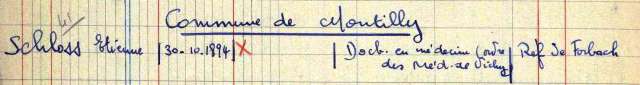 Commune de Montilly
Schloss Etienne | 30-10-1894 | X | Doct. en médecine (ordre | Réf de Forbach
des Méd. de Vichy)